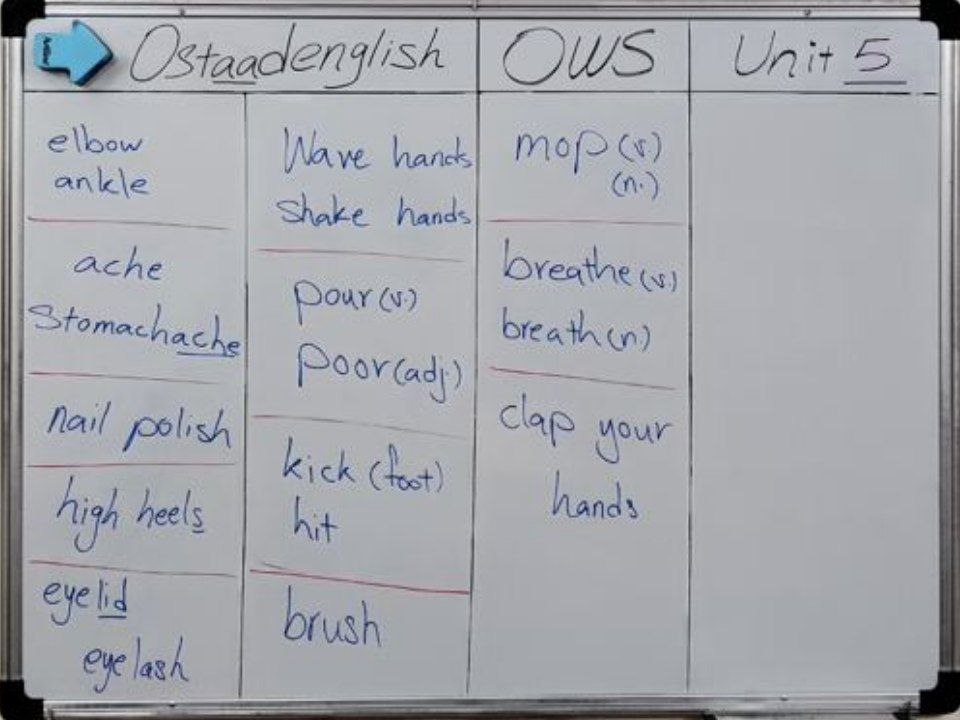 Ostaadenglish
OWS
Unit 5
elbow
ankle
ache
Stomachache
nail polish
high heels
eyelid
eyelash
Wave hands
Shake hands
pour (v.)
poor (adj.)
kick (foot)
hit
brush
mop (v.)
(n.)
breathe (v.)
breath (n.)
clap your
hands